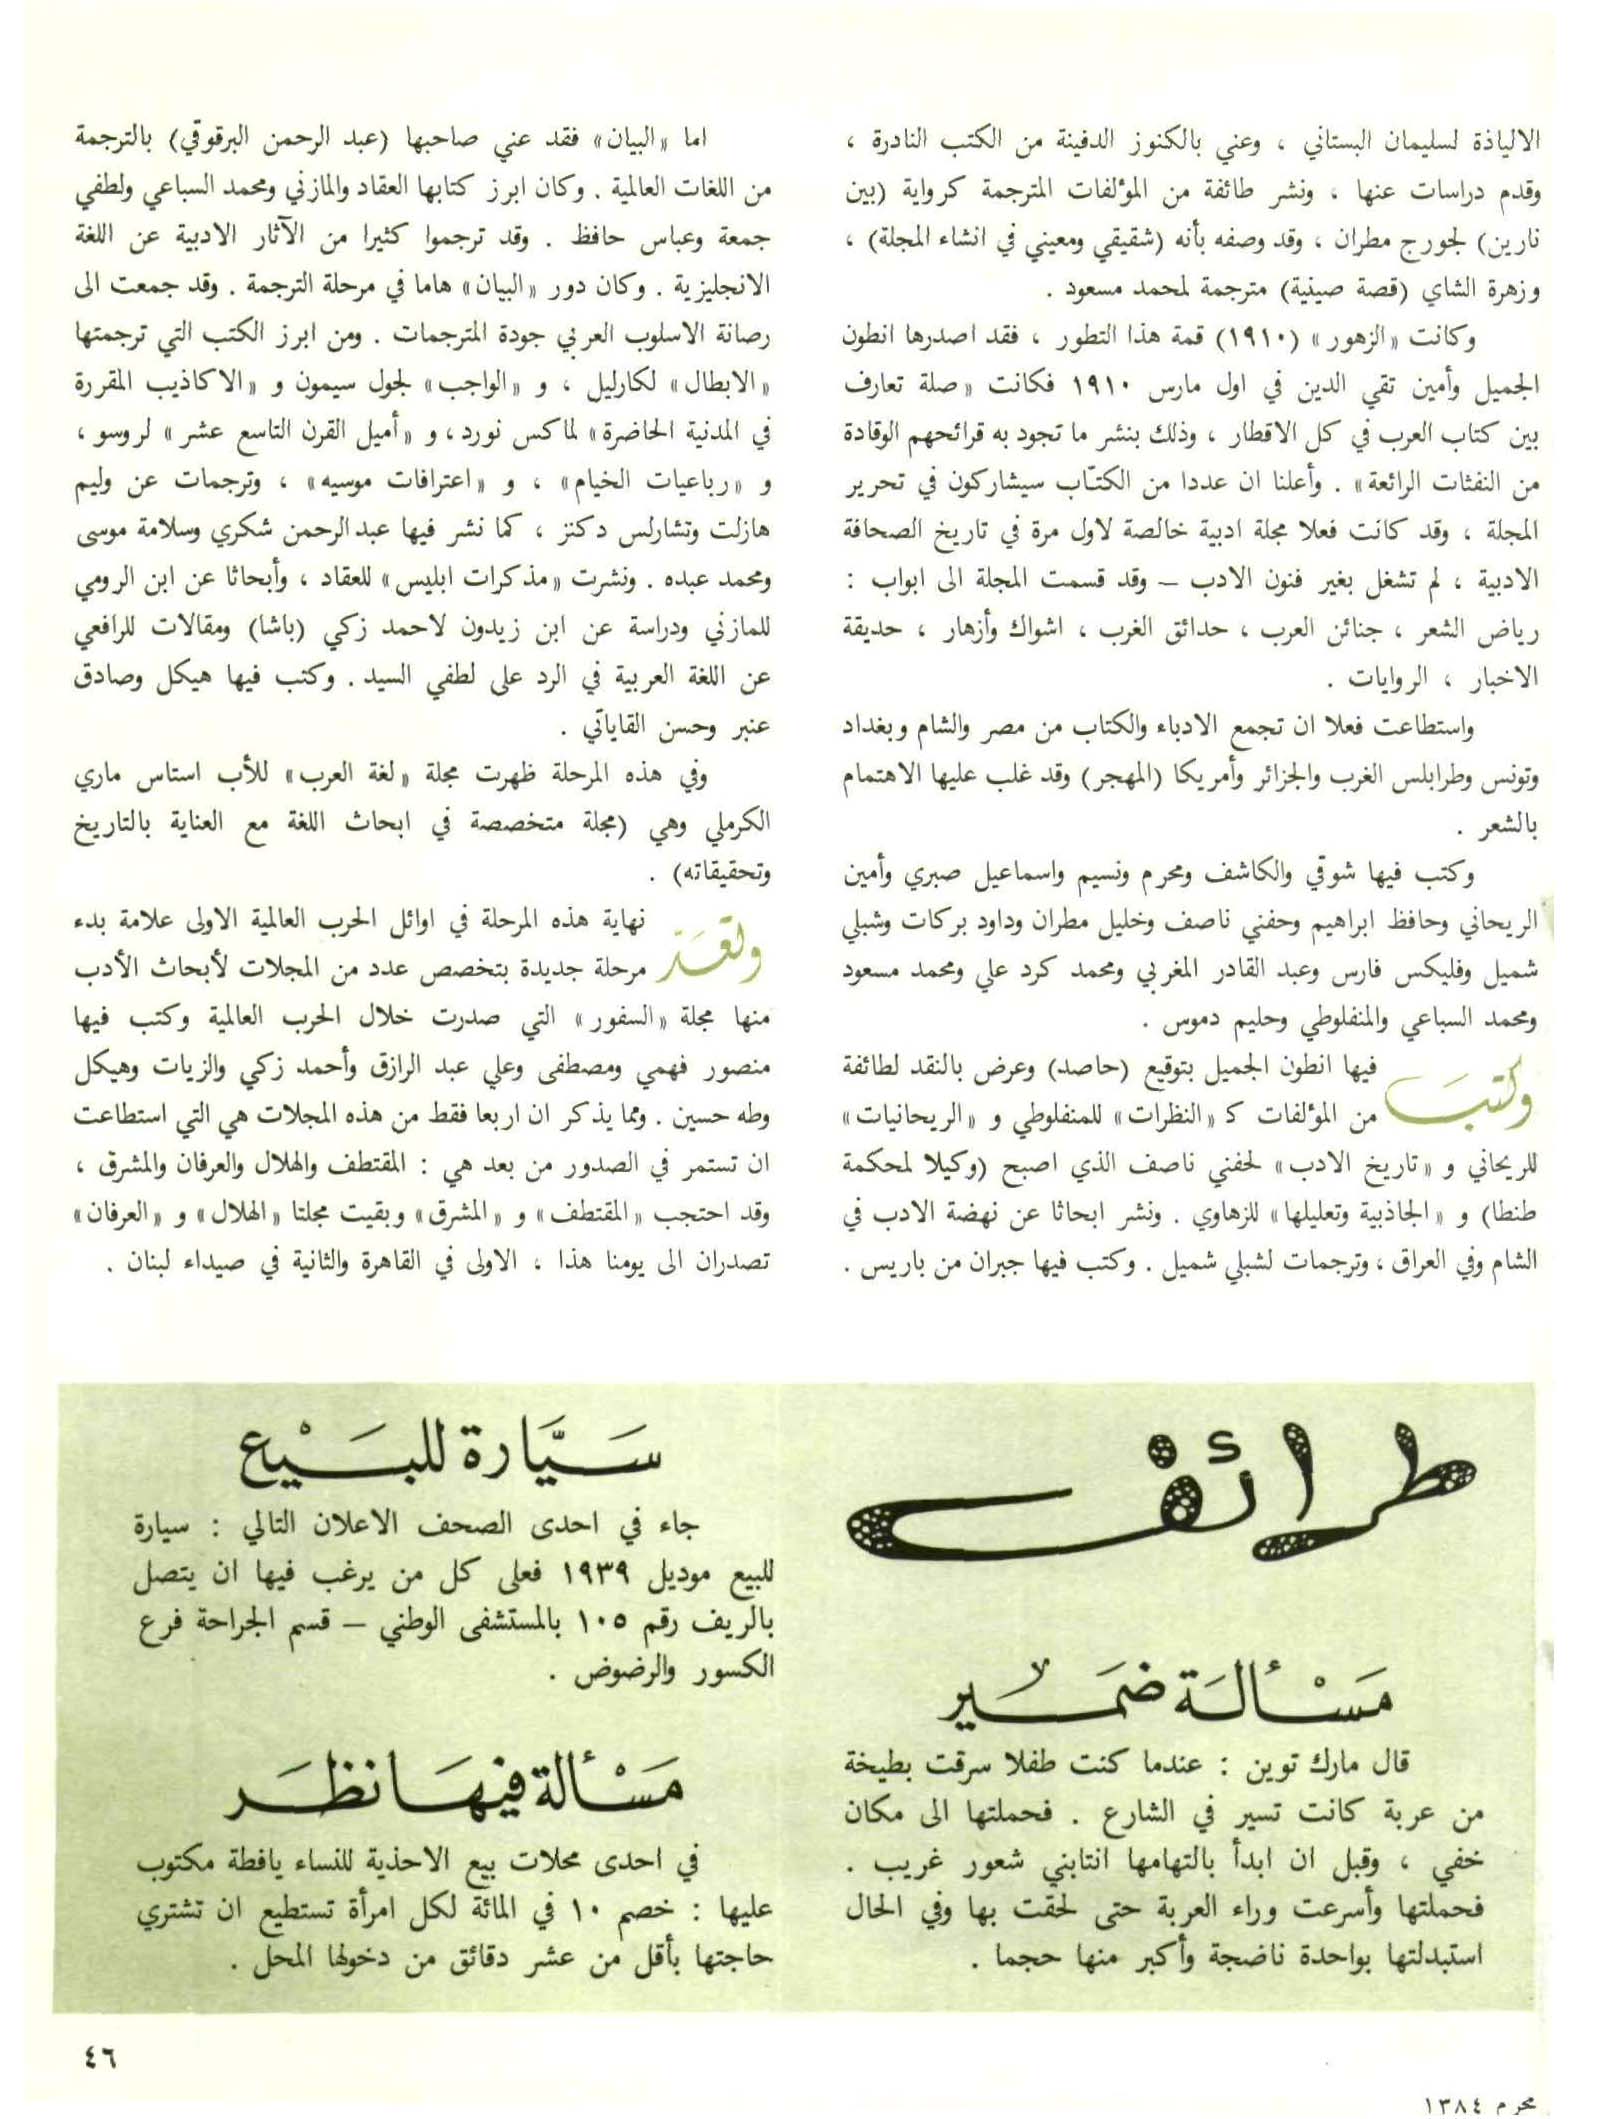 الالياذة لسليمان البستاني ، وعني بالكنوز الدفينة من الكتب النادرة ،
وقدم دراسات عنها ، ونشر طائفة من المؤلفات المترجمة كرواية (بين
نارين) لجورج مطران ، وقد وصفه بأنه (شقيقي ومعيني في انشاء المجلة) ،
وزهرة الشاي (قصة صينية) مترجمة لمحمد مسعود .
وكانت «الزهور» (١٩١٠) قمة هذا التطور ، فقد اصدرها انطون
الجميل وأمين تقي الدين في اول مارس ١٩١٠ فكانت «صلة تعارف
بين كتاب العرب في كل الاقطار ، وذلك بنشر ما تجود به قرائحهم الوقادة
من النفثات الرائعة» . وأعلنا ان عددا من الكتّاب سيشاركون في تحرير
المجلة ، وقد كانت فعلا مجلة ادبية خالصة لاول مرة في تاريخ الصحافة
الادبية ، لم تشغل بغير فنون الادب – وقد قسمت المجلة الى ابواب :
رياض الشعر ، جنائن العرب ، حدائق الغرب ، اشواك وأزهار ، حديقة
الاخبار ، الروايات .
واستطاعت فعلا ان تجمع الادباء والكتاب من مصر والشام وبغداد
وتونس وطرابلس الغرب والجزائر وأمريكا (المهجر) وقد غلب عليها الاهتمام
بالشعر .
وكتب فيها شوقي والكاشف ومحرم ونسيم واسماعيل صبري وأمين
الريحاني وحافظ ابراهيم وحفني ناصف وخليل مطران وداود بركات وشبلي
شميل وفليكس فارس وعبد القادر المغربي ومحمد كرد علي ومحمد مسعود
ومحمد السباعي والمنفلوطي وحليم دموس .
وكتب فيها انطون الجميل بتوقيع (حاصد) وعرض بالنقد لطائفة
من المؤلفات كـ «النظرات» للمنفلوطي و «الريحانيات»
للريحاني و «تاريخ الادب» لحفني ناصف الذي اصبح (وكيلا لمحكمة
طنطا) و «الجاذبية وتعليلها» للزهاوي . ونشر ابحاثا عن نهضة الادب في
الشام وفي العراق ، وترجمات لشبلي شميل . وكتب فيها جبران من باريس .
اما «البيان» فقد عني صاحبها (عبد الرحمن البرقوقي) بالترجمة
من اللغات العالمية . وكان ابرز كتابها العقاد والمازني ومحمد السباعي ولطفي
جمعة وعباس حافظ . وقد ترجموا كثيرا من الآثار الادبية عن اللغة
الانجليزية . وكان دور «البيان» هاما في مرحلة الترجمة . وقد جمعت الى
رصانة الاسلوب العربي جودة المترجمات . ومن ابرز الكتب التي ترجمتها
«الابطال» لكارليل ، و «الواجب» لجول سيمون و «الاكاذيب المقررة
في المدنية الحاضرة» لماكس نورد ، و «أميل القرن التاسع عشر» لروسو ،
و «رباعيات الخيام» ، و «اعترافات موسيه» ، وترجمات عن وليم
هازلت وتشارلس دكنز ، كما نشر فيها عبد الرحمن شكري وسلامة موسى
ومحمد عبده . ونشرت «مذكرات ابليس» للعقاد ، وأبحاثا عن ابن الرومي
للمازني ودراسة عن ابن زيدون لاحمد زكي (باشا) ومقالات للرافعي
عن اللغة العربية في الرد على لطفي السيد . وكتب فيها هيكل وصادق
عنبر وحسن القاياتي .
وفي هذه المرحلة ظهرت مجلة «لغة العرب» للأب استاس ماري
الكرملي وهي (مجلة متخصصة في ابحاث اللغة مع العناية بالتاريخ
وتحقيقاته) .
وتعَدّ نهاية هذه المرحلة في اوائل الحرب العالمية الاولى علامة بدء
مرحلة جديدة بتخصص عدد من المجلات لأبحاث الأدب
منها مجلة «السفور» التي صدرت خلال الحرب العالمية وكتب فيها
منصور فهمي ومصطفى وعلي عبد الرازق وأحمد زكي والزيات وهيكل
وطه حسين . ومما يذكر ان اربعا فقط من هذه المجلات هي التي استطاعت
ان تستمر في الصدور من بعد هي : المقتطف والهلال والعرفان والمشرق ،
وقد احتجب «المقتطف» و «المشرق» وبقيت مجلتا «الهلال» و «العرفان»
تصدران الى يومنا هذا ، الاولى في القاهرة والثانية في صيداء لبنان .
طرائف
مَسْألة ضمَير
قال مارك توين : عندما كنت طفلا سرقت بطيخة
من عربة كانت تسير في الشارع . فحملتها الى مكان
خفي ، وقبل ان ابدأ بالتهامها انتابني شعور غريب .
فحملتها وأسرعت وراء العربة حتى لحقت بها وفي الحال
استبدلتها بواحدة ناضجة وأكبر منها حجما .
سَيَّارة للبَيْع
جاء في احدى الصحف الاعلان التالي : سيارة
للبيع موديل ١٩٣٩ فعلى كل من يرغب فيها ان يتصل
بالريف رقم ١٠٥ بالمستشفى الوطني – قسم الجراحة فرع
الكسور والرضوض .
مَسْألة فيهَا نظَر
في احدى محلات بيع الاحذية للنساء يافطة مكتوب
عليها : خصم ١٠ في المائة لكل امرأة تستطيع ان تشتري
حاجتها بأقل من عشر دقائق من دخولها المحل .
٤٦
محرم ١٣٨٤